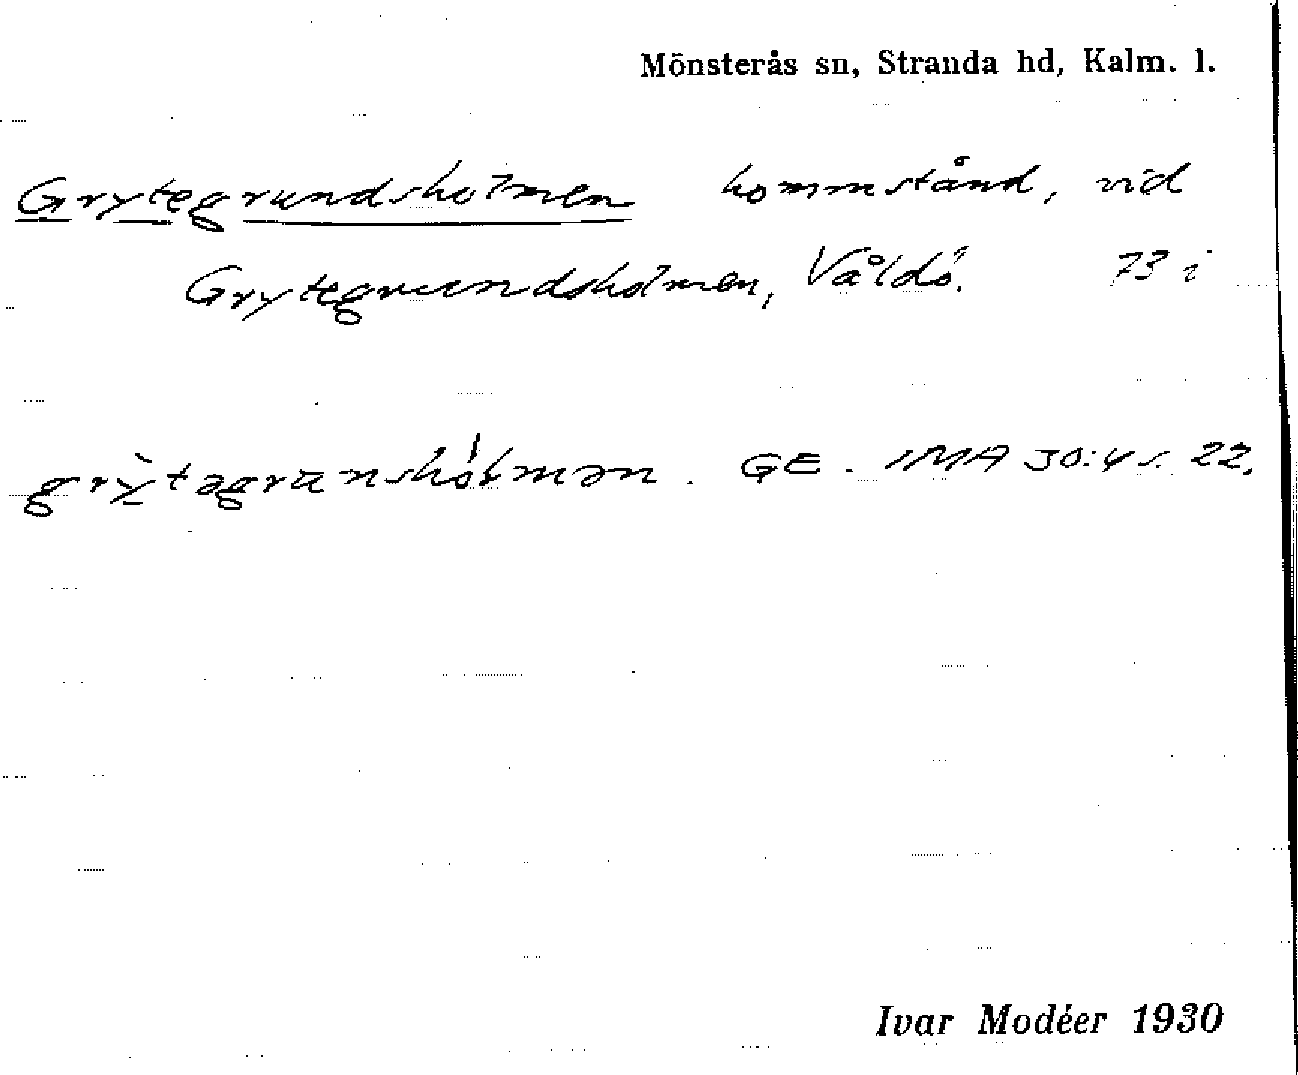 Mönsterås sn, Stranda hd, Kalm. l.
Grytegrundsholmen hommstånd, vid
Grytegrundsholmen, Våldö. 73 i
grỳtagrunshólmən. GE. IMA 30:4 s. 22.
Ivar Modéer 1930